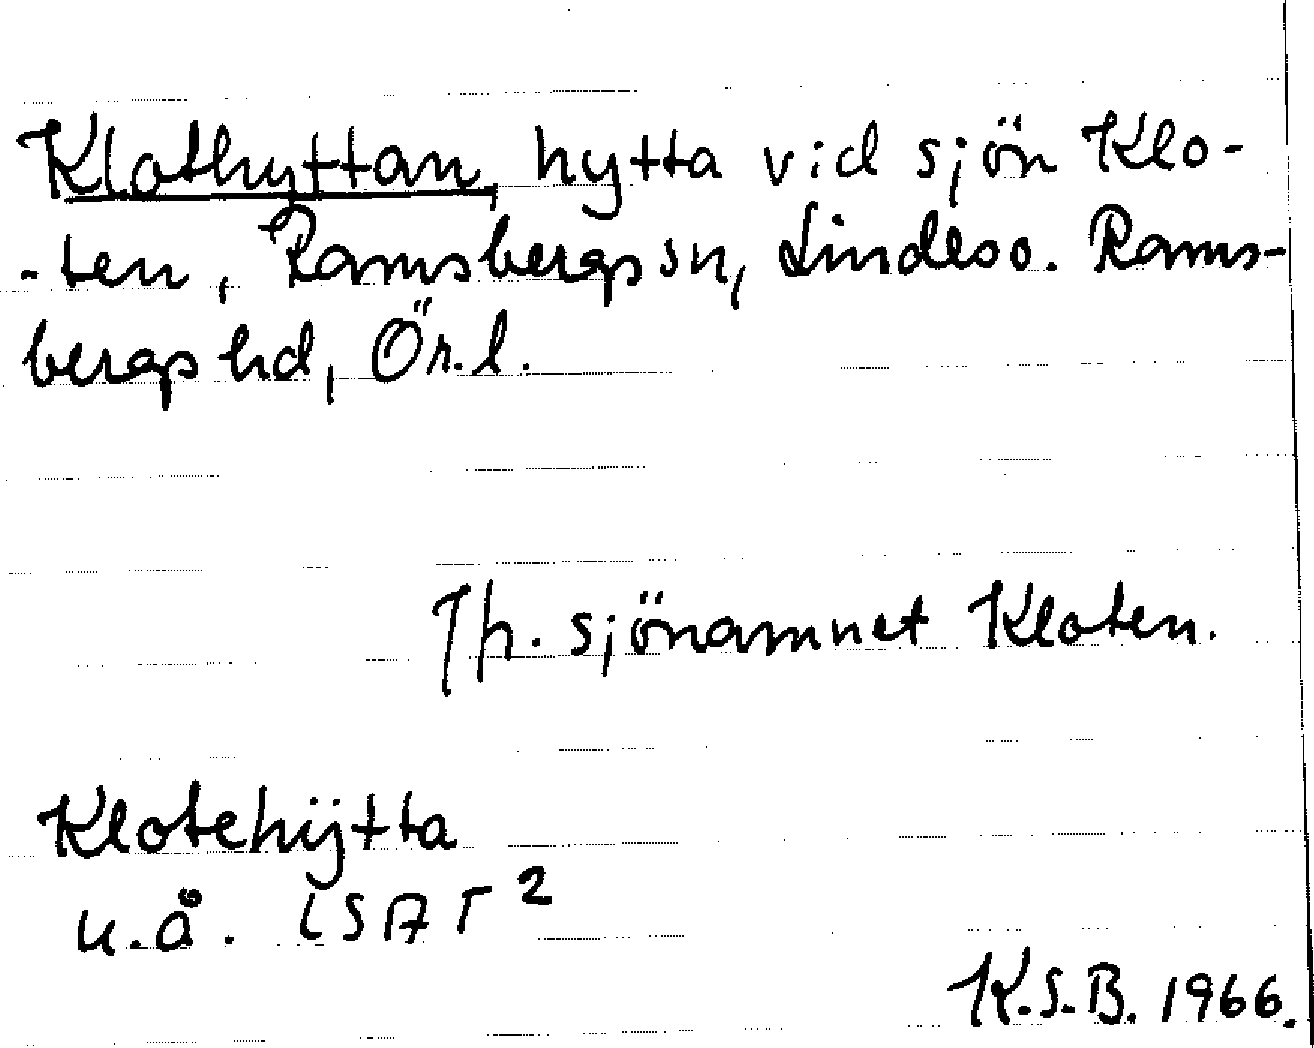 Klothyttan, hytta vid sjön Klo-
-ten, Ramsbergs sn, Lindes o. Rams-
bergs hd, Ör.l.
Jfr. sjönamnet Kloten.
Klotehÿtta
u.å. LSA T²
K.S.B. 1966.